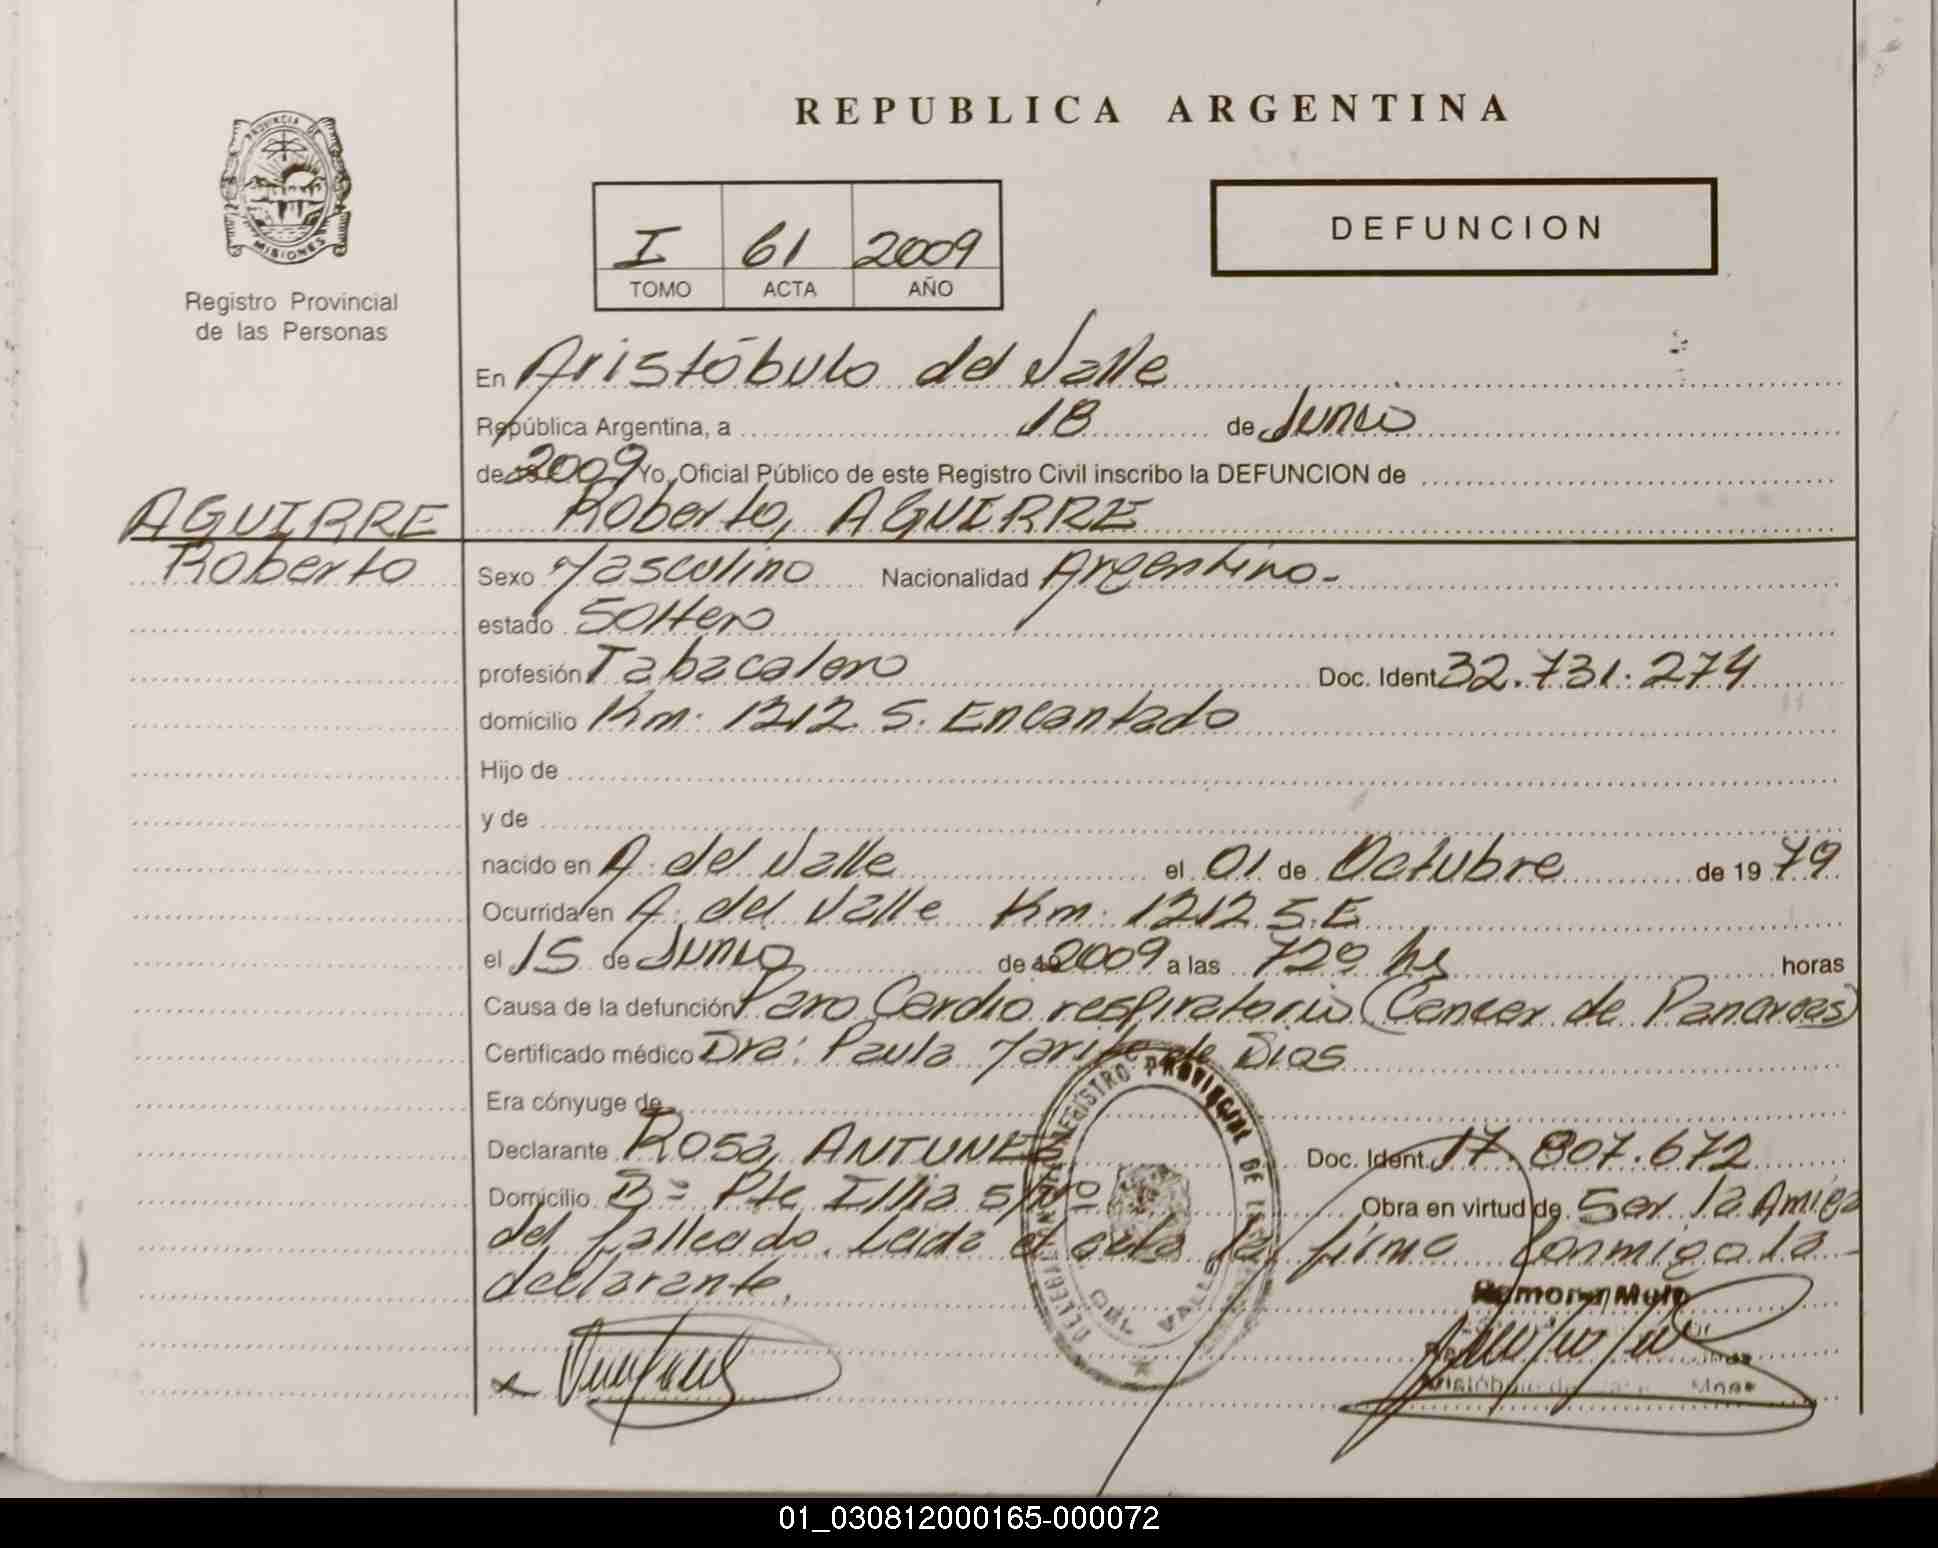 REPUBLICA ARGENTINA
PROVINCIA DE
MISIONES
Registro Provincial
de las Personas
I 61 2009
TOMO ACTA AÑO
DEFUNCION
En Aristóbulo del Valle
República Argentina, a 18 de Junio
de 2009 Yo, Oficial Público de este Registro Civil inscribo la DEFUNCION de
AGUIRRE Roberto, AGUIRRE
Roberto Sexo Masculino Nacionalidad Argentino.-
estado Soltero
profesión Tabacalero Doc. Ident 32.731.274
domicilio Km. 1212 S. Encantado
Hijo de
y de
nacido en A. del Valle el 01 de Octubre de 19 79
Ocurrida en A. del Valle Km. 1212 S.E
el 15 de Junio de 19 2009 a las 7 20 hs horas
Causa de la defunción Paro Cardio respiratorio (Cancer de Pancreas)
Certificado médico Dra: Paula de Dios
Era cónyuge de
Declarante Rosa, ANTUNE Doc. Ident. 17.807.672
Domicilio B= Pte Illia s/nro Obra en virtud de Ser la Amiga
del fallecido. Leida el acta la firma conmigo la
declarante.
REGISTRO PROVINCIAL DE
DEL VALLE
01_030812000165-000072